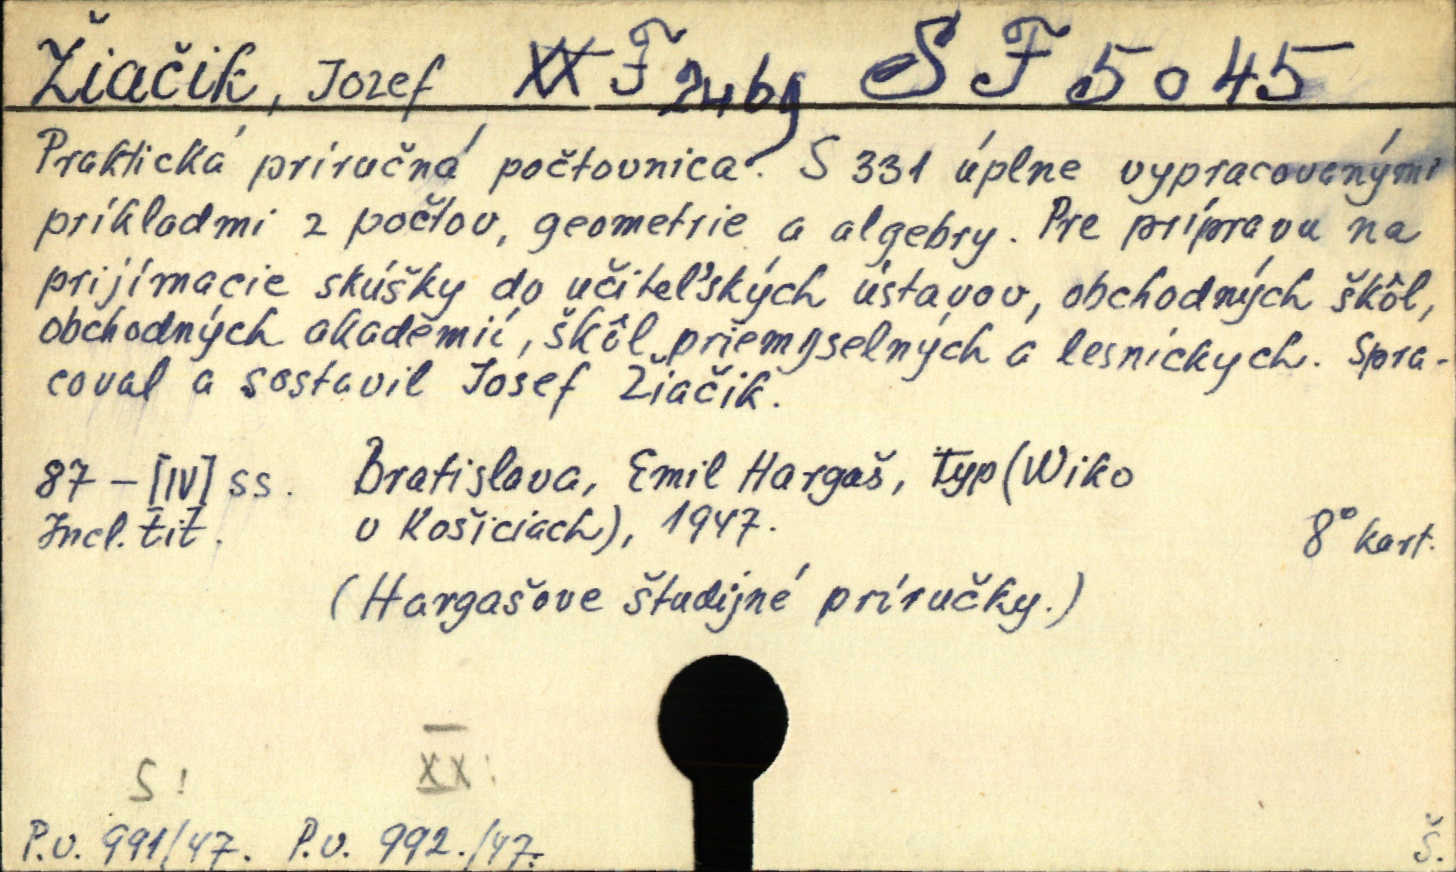 Žiačik, Jozef XX F 2469 SF 5045
Praktická príručná počtovnica. S 331 úplne vypracovanými
príkladmi z počtov, geometrie a algebry. Pre prípravu na
prijímacie skúšky do učiteľských ústavov, obchodných škôl,
obchodných akadémií, škôl priemyselných a lesníckych. Spra-
coval a sostavil Josef Žiačik.
87 – [IV] ss. Bratislava, Emil Hargaš, Typ (Wiko
Incl. tit. v Košiciach), 1947. 8° kart.
(Hargašove študijné príručky.)
S! XX
P.v. 991/47. P.v. 992./47. Š.